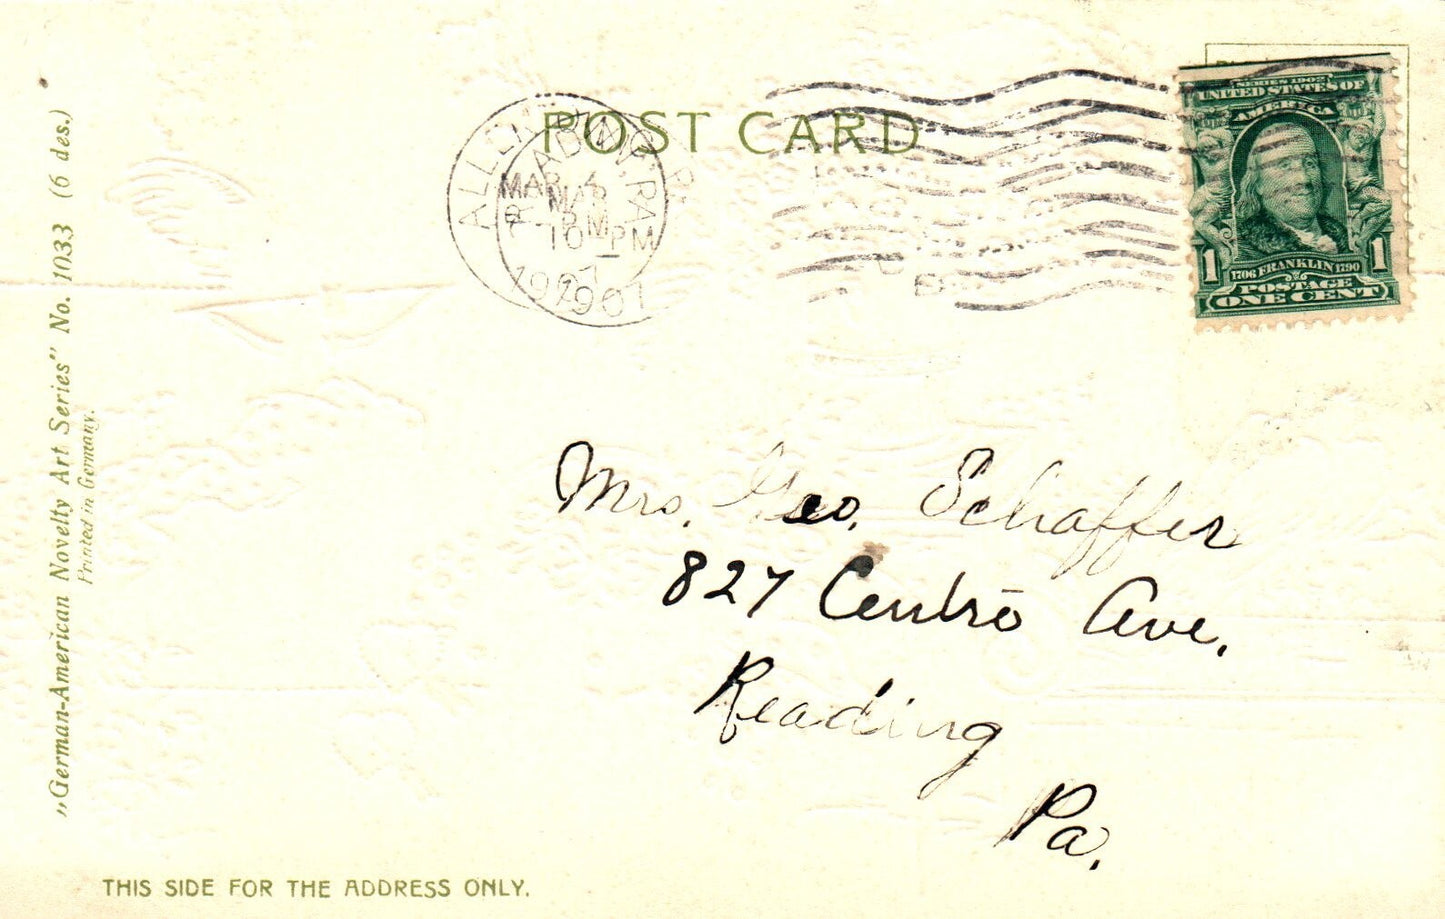 POST CARD
ALLEN
READING, PA.
MAR 4
MAR
PM
10 PM
1907
1907
SERIES 1902
UNITED STATES OF
AMERICA
1 1706 FRANKLIN 1790 1
POSTAGE
ONE CENT
„German-American Novelty Art Series" No. 1033 (6 des.)
Printed in Germany.
Mrs. Geo. Schaffer
827 Centre Ave.
Reading
Pa.
THIS SIDE FOR THE ADDRESS ONLY.